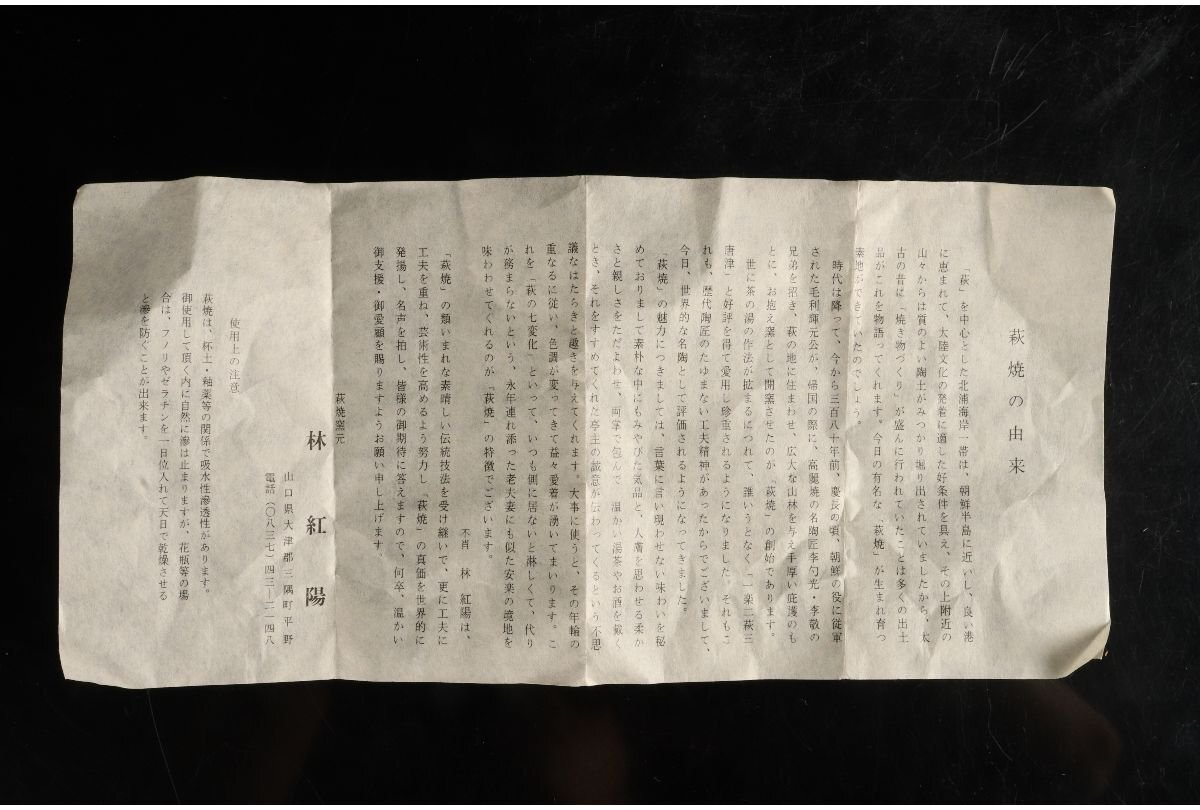 萩焼の由来
「萩」を中心とした北浦海岸一帯は、朝鮮半島に近いし、良い港
に恵まれて、大陸文化の発着に適した好条件を具え、その上附近の
山々からは質のよい陶土がみつかり堀り出されていましたから、太
古の昔に「焼き物づくり」が盛んに行われていたことは多くの出土
品がこれを物語ってくれます。今日の有名な「萩焼」が生まれ育つ
素地ができていたのでしょう。
時代は降って、今から三百八十年前、慶長の頃、朝鮮の役に従軍
された毛利輝元公が、帰国の際に、高麗焼の名陶匠李勺光・李敬の
兄弟を招き、萩の地に住まわせ、広大な山林を与え手厚い庇護のも
とに、お抱え窯として開窯させたのが「萩焼」の創始であります。
世に茶の湯の作法が拡まるにつれて、誰いうとなく「一楽二萩三
唐津」と好評を得て愛用し珍重されるようになりました。それもこ
れも、歴代陶匠のたゆまない工夫精神があったからでございまして、
今日、世界的な名陶として評価されるようになってきました。
「萩焼」の魅力につきましては、言葉に言い現わせない味わいを秘
めておりまして素朴な中にもみやびた気品と、人膚を思わせる柔か
さと親しさをただよわせ、両掌で包んで、温かい湯茶やお酒を戴く
とき、それをすすめてくれた亭主の誠意が伝わってくるという不思
議なはたらきと趣きを与えてくれます。大事に使うと、その年輪の
重なるに従い、色調が変ってきて益々愛着が湧いてまいります。こ
れを「萩の七変化」といって、いつも側に居ないと淋しくて、代り
が務まらないという、永年連れ添った老夫妻にも似た安楽の境地を
味わわせてくれるのが「萩焼」の特徴でございます。
不肖 林 紅陽は、
「萩焼」の類いまれな素晴しい伝統技法を受け継いで、更に工夫に
工夫を重ね、芸術性を高めるよう努力し「萩焼」の真価を世界的に
発揚し、名声を拍し、皆様の御期待に答えますので、何卒、温かい
御支援・御愛顧を賜りますようお願い申し上げます。
萩焼窯元
林 紅 陽
山口県大津郡三隅町平野
電話(〇八三七)四三―二一四八
使用上の注意
萩焼は、杯土・釉薬等の関係で吸水性滲透性があります。
御使用して頂く内に自然に滲は止まりますが、花瓶等の場
合は、フノリやゼラチンを一日位入れて天日で乾燥させる
と滲を防ぐことが出来ます。